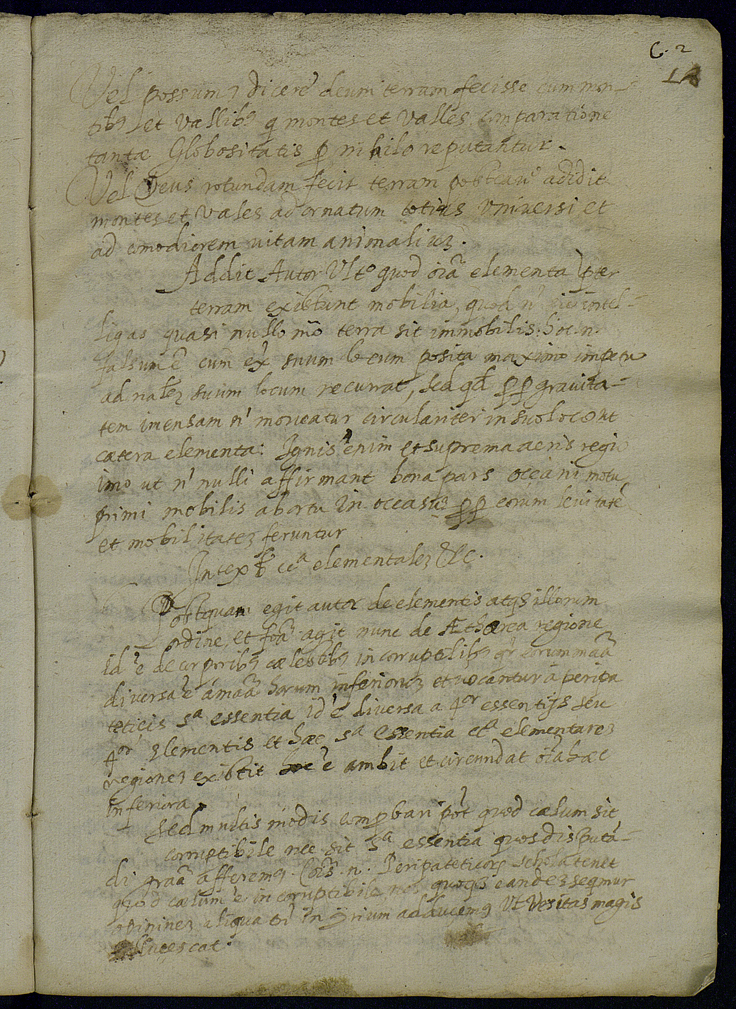 C. 2
14
Vel possumꝫ dicere deum terram fecisse cum mon-
tibꝫ et vallibꝫ q̃ montes et valles cõparatione
tantæ Globositatis p nihilo reputantur.
Vel Deus rotundam fecit terram postea adidit
montes et vales ad ornatum totius vniversi et
ad cmodiorem vitam animaliuꝫ.
Addit Autor Vlt° quod oĩa elementa præter
terram existunt mobilia, quod n' intel-
ligas quasi nullo mõ terra sit immobilis: hoc .n.
falsum ẽ cum ex suum locum posita maximo impetu
ad natꝫ suum locum recurrat, sed qd pp gravita-
tem imensam n' moveatur circulariter in suo loco ut
cætera elementa: Ignis enim et suprema aeris regi
imo ut n' nulli affirmant bona pars oceani motu
primi mobilis ab ortu in occasũ pp eorum levitatẽ
et mobilitateꝫ feruntur
In tex t ceᵃ elementaleꝫ &c.
Postquam egit autor de elementis atqꝫ illorum
ordine, et foᵃ agit nunc de Ætherea regione
id ẽ de corporibꝫ cælestibꝫ incoruptilibꝫ qr eorum maã
diversa ẽ a maã horum inferioruꝫ et vocantur a peripa
teticis 5ᵃ essentia id ẽ diversa a 4ᵒʳ essentijs seu
4ᵒʳ elementis et hæc 5ᵃ essentia cᵃ elementareꝫ
regioneꝫ existit ẽ ambit et circundat oĩa hæc
inferiora.
Sed multis modis comprobari põt quod cælum sit
corruptibile nec sit 5ᵃ essentia quos disputã-
di graã afferemꝫ. Cõis .n. Peripateticoꝝ schola tenet
quod cælum ẽ incorruptibile nos quoqꝫ eandeꝫ seqmur
opinineꝫ aliqua tñ in ꝯrium adducemꝫ Vt veritas magis
ellucescat.